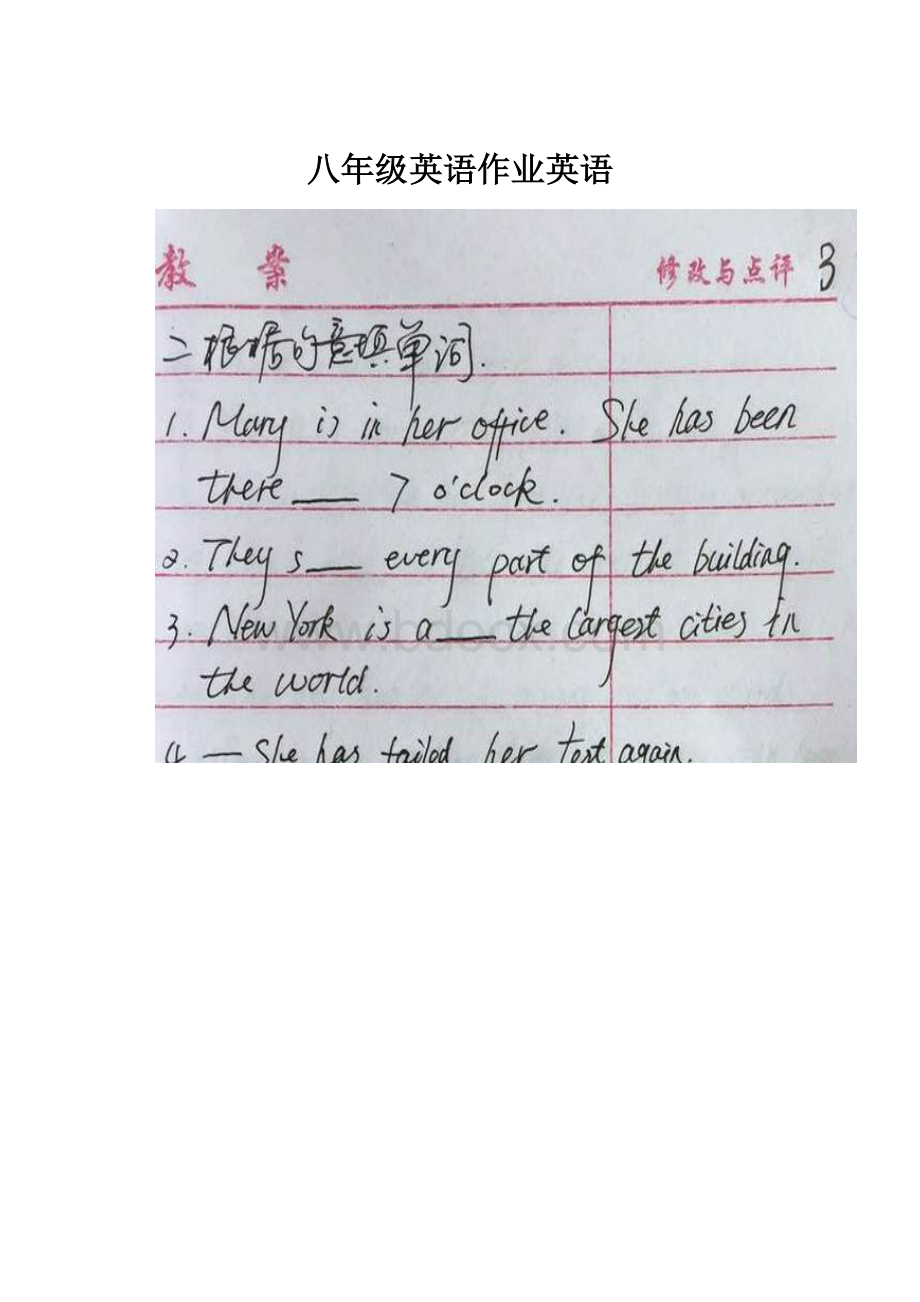 八年级英语作业英语
教 案 修改与点评 3
二根据句意填单词.
1. Mary is in her office. She has been
there ___ 7 o'clock.
2. They s___ every part of the building.
3. New York is a___ the largest cities in
the world.
4. — She has failed her test again.